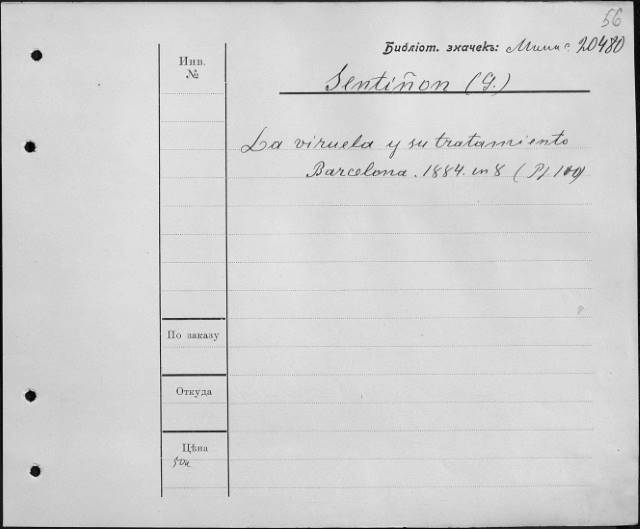 56
Библіот. значекъ: 20480
Инв.
№
Sentiñon (G.)
La viruela y su tratamiento
Barcelona. 1884. in 8
По заказу
Откуда
Цѣна